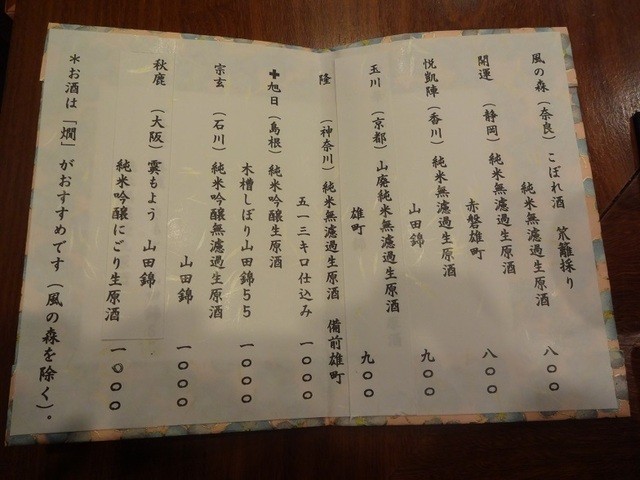 風の森（奈良）こぼれ酒　笊籬採り
純米無濾過生原酒　八〇〇
開運　（静岡）純米無濾過生原酒　八〇〇
赤磐雄町
悦凱陣（香川）純米無濾過生原酒　九〇〇
山田錦
玉川　（京都）山廃純米無濾過生原酒　九〇〇
雄町
隆　（神奈川）純米無濾過生原酒　備前雄町
五一三キロ仕込み　一〇〇〇
十旭日（島根）純米吟醸生原酒
木槽しぼり山田錦５５　一〇〇〇
宗玄　（石川）純米吟醸無濾過生原酒
山田錦　一〇〇〇
秋鹿　（大阪）霙もよう　山田錦
純米吟醸にごり生原酒　一〇〇〇
＊お酒は「燗」がおすすめです（風の森を除く）。